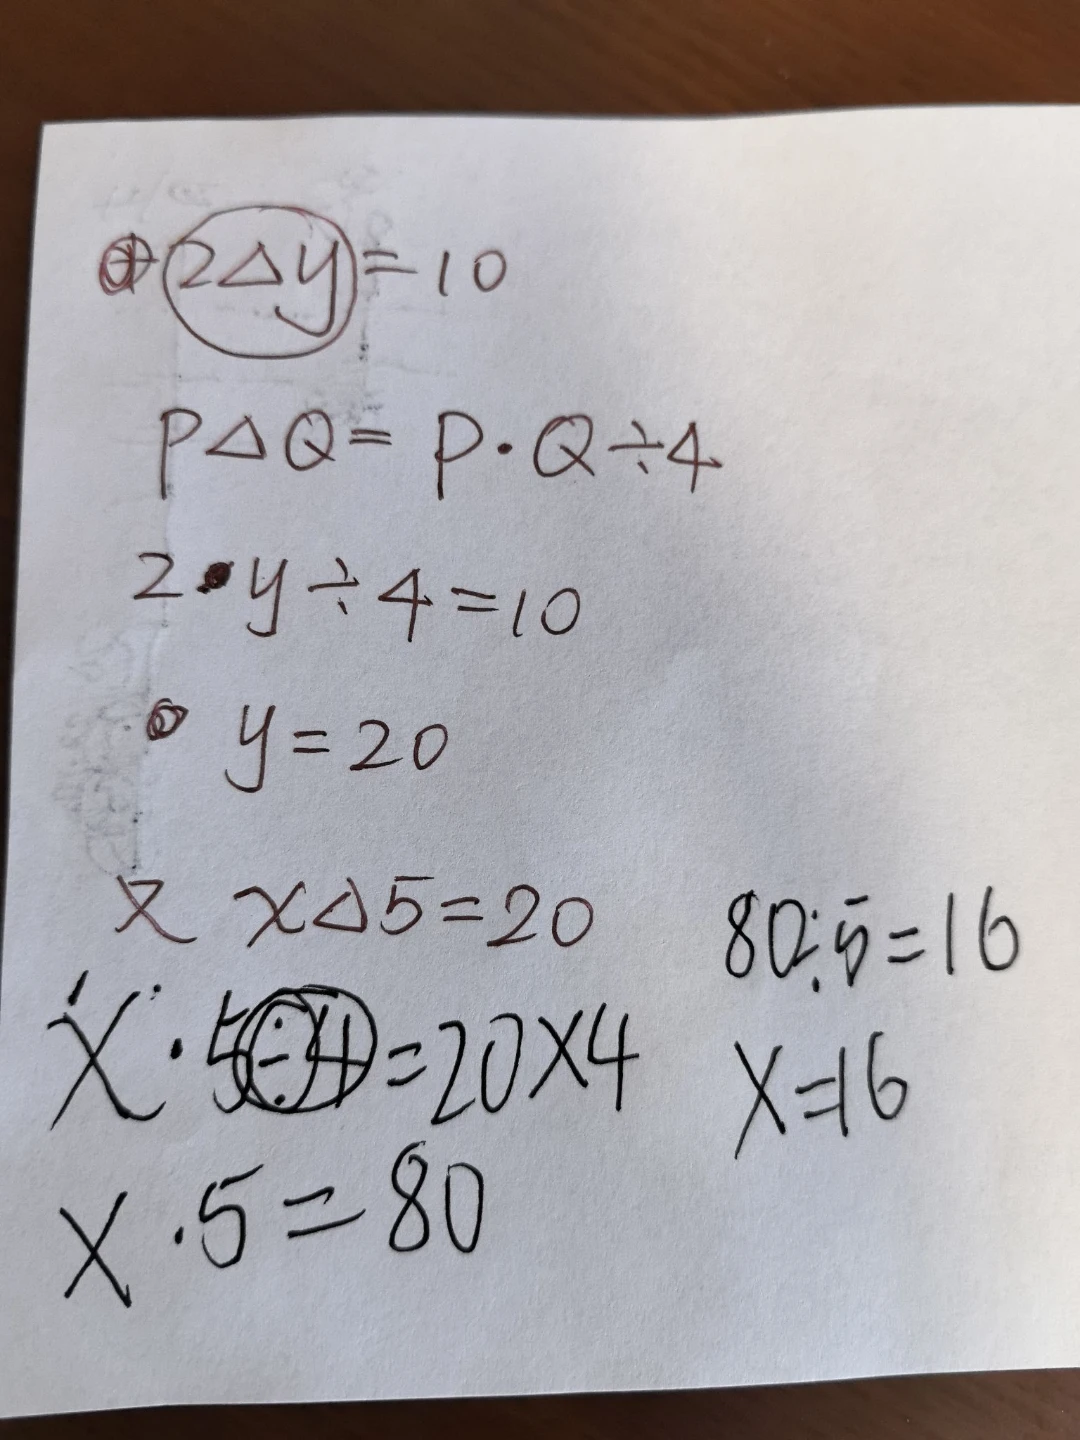 2△y=10
P△Q=P·Q÷4
2·y÷4=10
y=20
x x△5=20
x·5÷4=20×4
x·5=80
80÷5=16
x=16